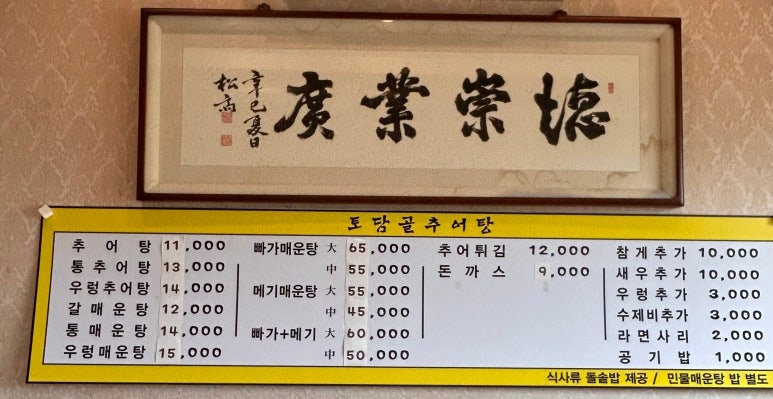 德崇業廣
辛巳夏日
松高
토담골추어탕
추어탕 11,000
통추어탕 13,000
우렁추어탕 14,000
갈매운탕 12,000
통매운탕 14,000
우렁매운탕 15,000
빠가매운탕 大 65,000
中 55,000
메기매운탕 大 55,000
中 45,000
빠가+메기 大 60,000
中 50,000
추어튀김 12,000
돈까스 9,000
참게추가 10,000
새우추가 10,000
우렁추가 3,000
수제비추가 3,000
라면사리 2,000
공기밥 1,000
식사류 돌솥밥 제공 / 민물매운탕 밥 별도